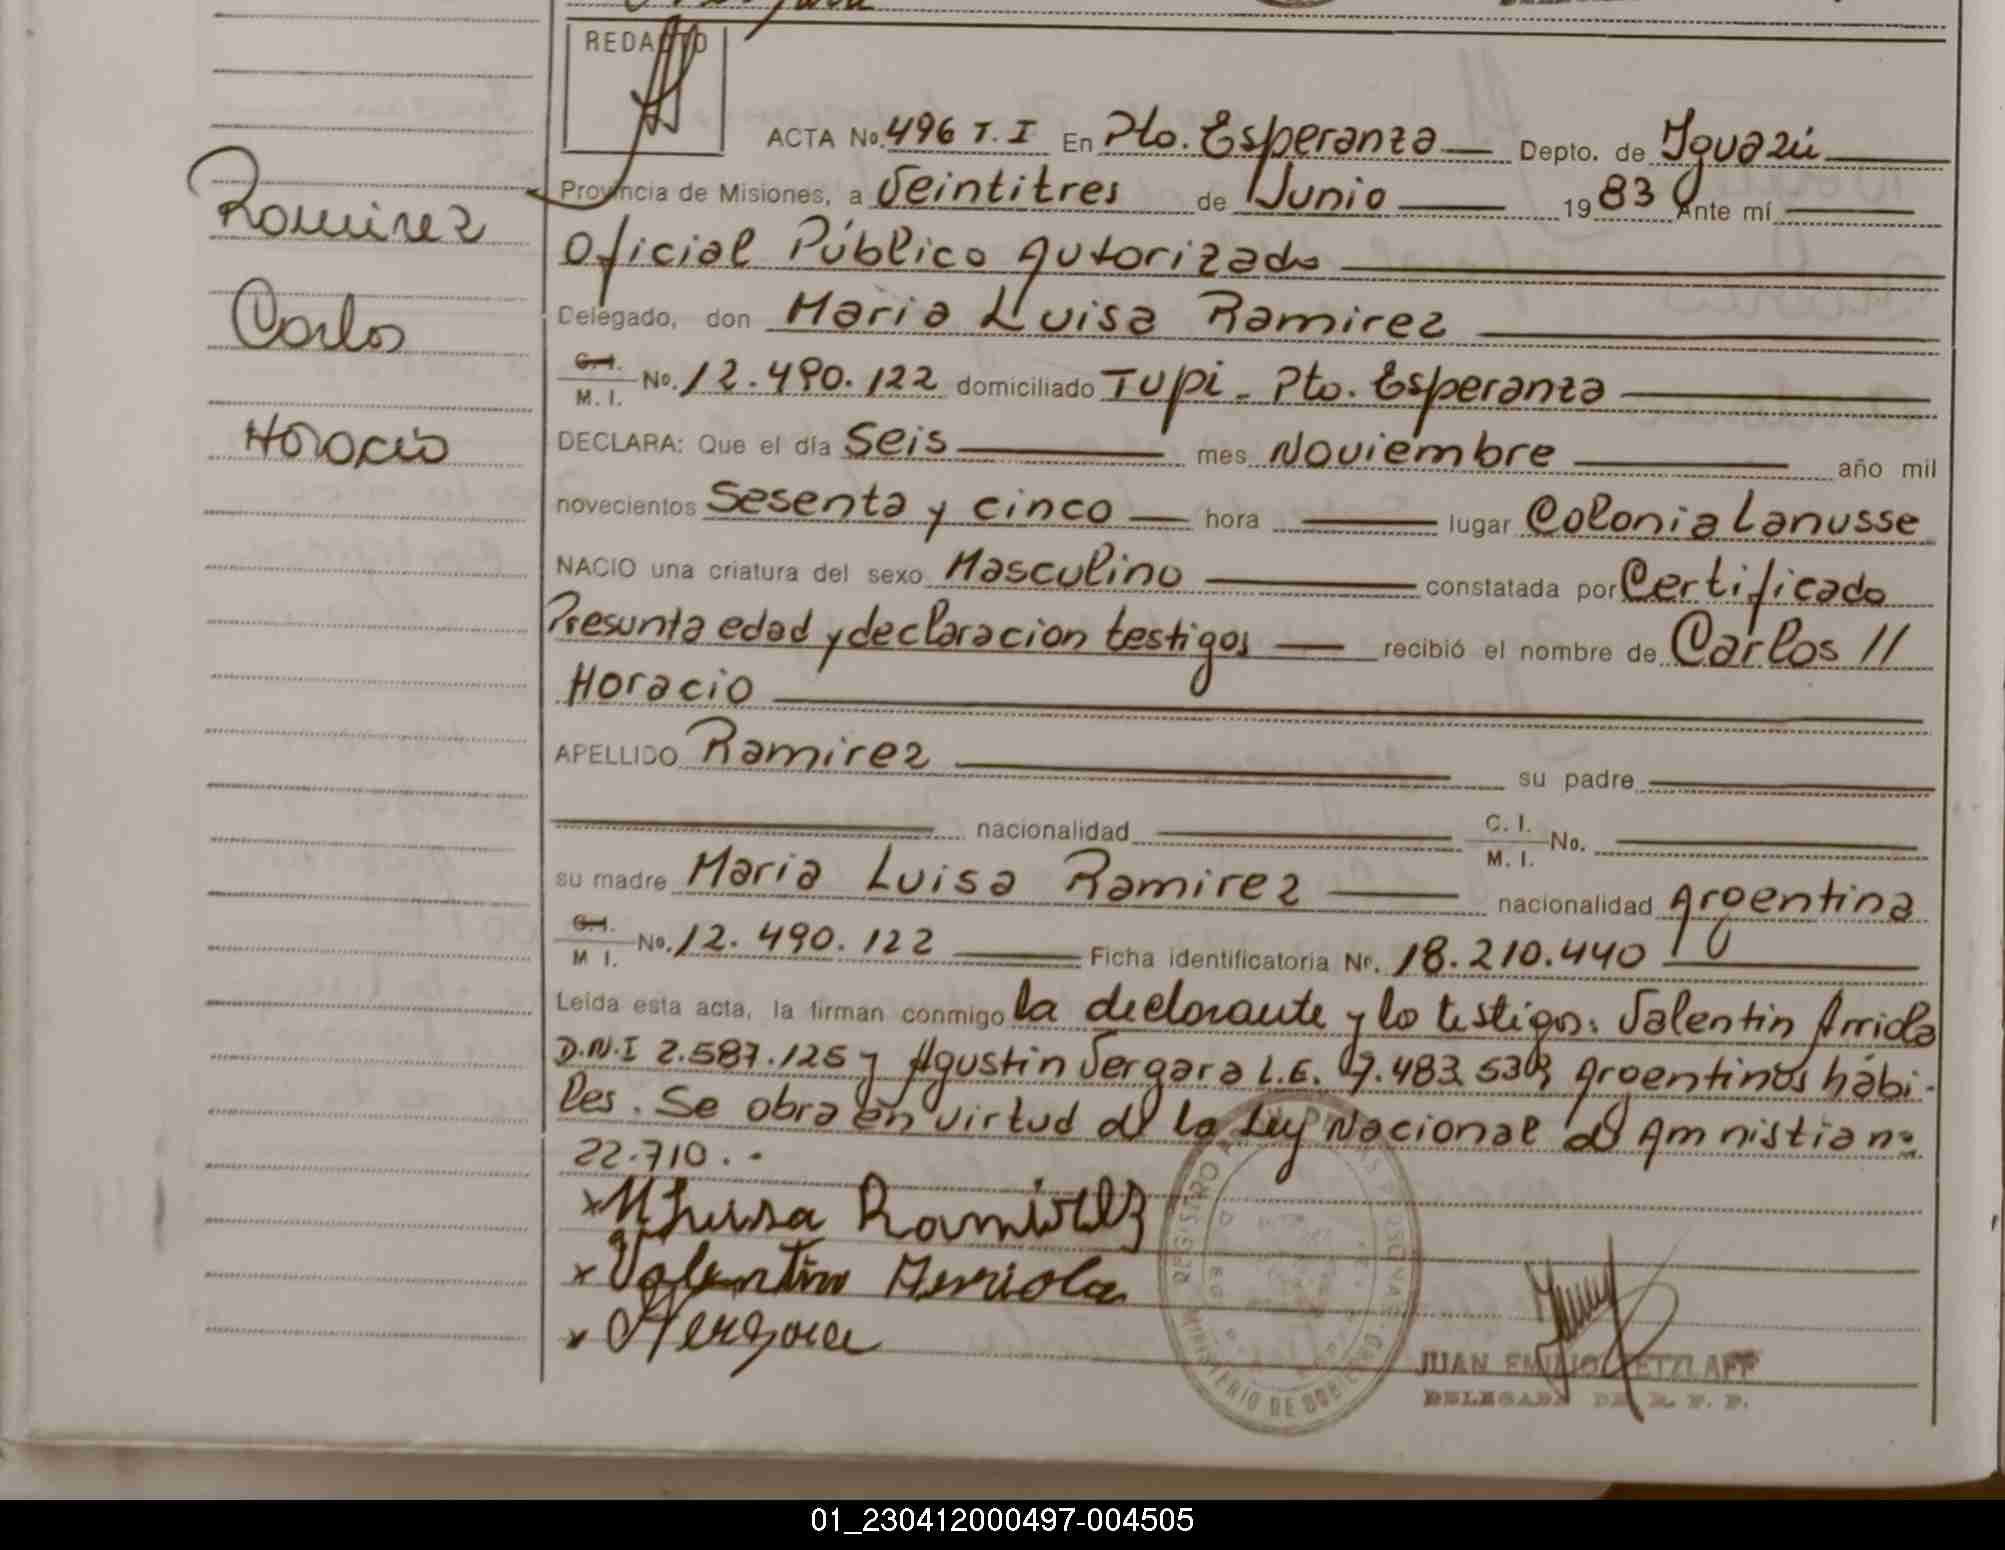 REDACTO
ACTA No. 496 T. I En Pto. Esperanza Depto. de Iguazú
Provincia de Misiones, a Veintitres de Junio 1983 Ante mí
Oficial Público Autorizado
Ramirez
Delegado, don Maria Luisa Ramirez
Carlos
C.I. M. I. No. 12.490.122 domiciliado Tupi - Pto. Esperanza
Horacio
DECLARA: Que el día Seis mes Noviembre año mil
novecientos Sesenta y cinco hora lugar Colonia Lanusse
NACIO una criatura del sexo Masculino constatada por Certificado
Presunta edad y declaracion testigos recibió el nombre de Carlos //
Horacio
APELLIDO Ramirez su padre
nacionalidad C. I. M. I. No.
su madre Maria Luisa Ramirez nacionalidad Argentina
C.I. M I. No. 12.490.122 Ficha identificatoria Nº. 18.210.440
Leída esta acta, la firman conmigo la declarante y lo testigos: Valentin Arriola
D.N.I 2.587.125 y Agustin Vergara L.E. 7.483.539 Argentinos hábi-
les. Se obra en virtud de la Ley Nacional de Amnistia nº
22.710.-
x M Luisa Ramirez
x Valentin Arriola
x AVergara
REGISTRO
MINISTERIO DE GOBIERNO
JUAN EMILIO RETZLAFF
DELEGADO DE R. P. P.
01_230412000497-004505